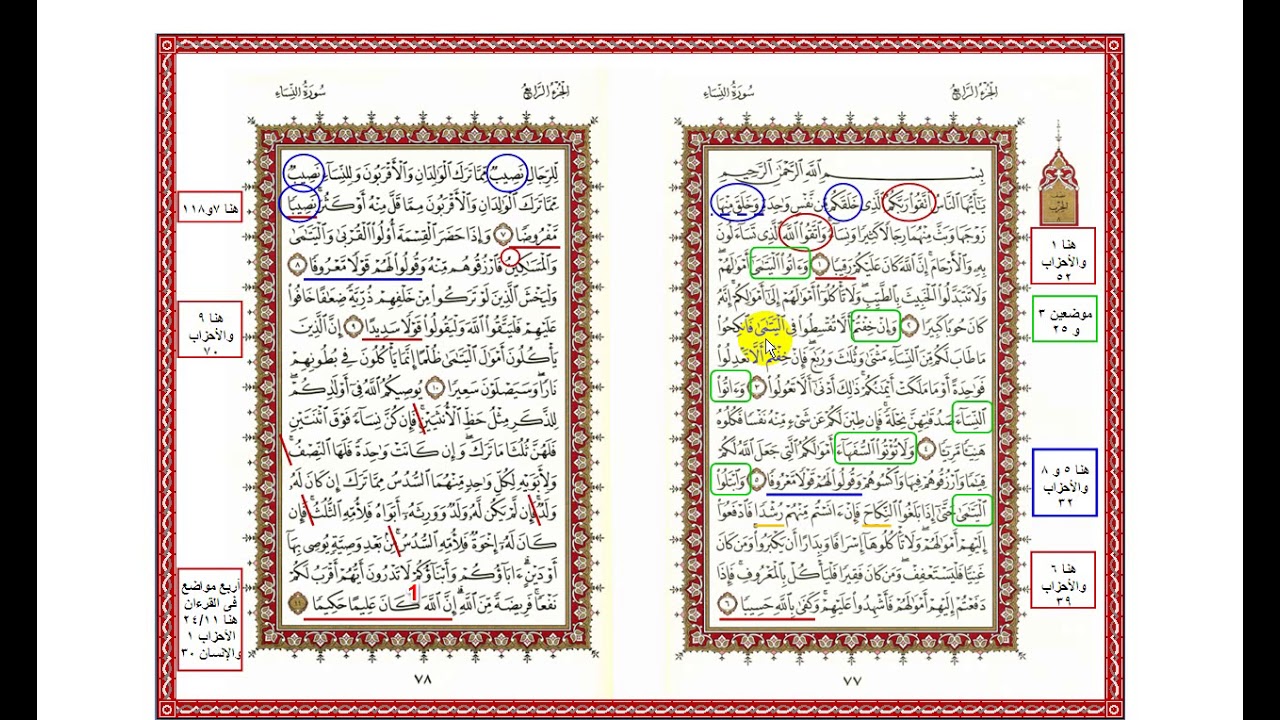 سُورَةُ النِّسَاءِ
الجُزْءُ الرَّابِعُ
بِسْمِ اللَّهِ الرَّحْمَٰنِ الرَّحِيمِ
يَٰٓأَيُّهَا النَّاسُ اتَّقُوا۟ رَبَّكُمُ الَّذِى خَلَقَكُم مِّن نَّفْسٍ وَٰحِدَةٍ وَخَلَقَ مِنْهَا
زَوْجَهَا وَبَثَّ مِنْهُمَا رِجَالًا كَثِيرًا وَنِسَآءً وَاتَّقُوا۟ اللَّهَ الَّذِى تَسَآءَلُونَ
بِهِۦ وَالْأَرْحَامَ إِنَّ اللَّهَ كَانَ عَلَيْكُمْ رَقِيبًا ١ وَءَاتُوا۟ الْيَتَٰمَىٰٓ أَمْوَٰلَهُمْ
وَلَا تَتَبَدَّلُوا۟ الْخَبِيثَ بِالطَّيِّبِ وَلَا تَأْكُلُوٓا۟ أَمْوَٰلَهُمْ إِلَىٰٓ أَمْوَٰلِكُمْ إِنَّهُۥ
كَانَ حُوبًا كَبِيرًا ٢ وَإِنْ خِفْتُمْ أَلَّا تُقْسِطُوا۟ فِى الْيَتَٰمَىٰ فَانكِحُوا۟
مَا طَابَ لَكُم مِّنَ النِّسَآءِ مَثْنَىٰ وَثُلَٰثَ وَرُبَٰعَ فَإِنْ خِفْتُمْ أَلَّا تَعْدِلُوا۟
فَوَٰحِدَةً أَوْ مَا مَلَكَتْ أَيْمَٰنُكُمْ ذَٰلِكَ أَدْنَىٰٓ أَلَّا تَعُولُوا۟ ٣ وَءَاتُوا۟
النِّسَآءَ صَدُقَٰتِهِنَّ نِحْلَةً فَإِن طِبْنَ لَكُمْ عَن شَىْءٍ مِّنْهُ نَفْسًا فَكُلُوهُ
هَنِيٓـًٔا مَّرِيٓـًٔا ٤ وَلَا تُؤْتُوا۟ السُّفَهَآءَ أَمْوَٰلَكُمُ الَّتِى جَعَلَ اللَّهُ لَكُمْ
قِيَٰمًا وَارْزُقُوهُمْ فِيهَا وَاكْسُوهُمْ وَقُولُوا۟ لَهُمْ قَوْلًا مَّعْرُوفًا ٥ وَابْتَلُوا۟
الْيَتَٰمَىٰ حَتَّىٰٓ إِذَا بَلَغُوا۟ النِّكَاحَ فَإِنْ ءَانَسْتُم مِّنْهُمْ رُشْدًا فَادْفَعُوٓا۟
إِلَيْهِمْ أَمْوَٰلَهُمْ وَلَا تَأْكُلُوهَآ إِسْرَافًا وَبِدَارًا أَن يَكْبَرُوا۟ وَمَن كَانَ
غَنِيًّا فَلْيَسْتَعْفِفْ وَمَن كَانَ فَقِيرًا فَلْيَأْكُلْ بِالْمَعْرُوفِ فَإِذَا
دَفَعْتُمْ إِلَيْهِمْ أَمْوَٰلَهُمْ فَأَشْهِدُوا۟ عَلَيْهِمْ وَكَفَىٰ بِاللَّهِ حَسِيبًا ٦
٧٧
هنا ١
والأحزاب
٥٢
موضعين ٣
و ٢٥
هنا ٥ و ٨
والأحزاب
٣٢
هنا ٦
والأحزاب
٣٩
سُورَةُ النِّسَاءِ
الجُزْءُ الرَّابِعُ
لِّلرِّجَالِ نَصِيبٌ مِّمَّا تَرَكَ الْوَٰلِدَانِ وَالْأَقْرَبُونَ وَلِلنِّسَآءِ نَصِيبٌ
مِّمَّا تَرَكَ الْوَٰلِدَانِ وَالْأَقْرَبُونَ مِمَّا قَلَّ مِنْهُ أَوْ كَثُرَ نَصِيبًا
مَّفْرُوضًا ٧ وَإِذَا حَضَرَ الْقِسْمَةَ أُو۟لُوا۟ الْقُرْبَىٰ وَالْيَتَٰمَىٰ
وَالْمَسَٰكِينُ فَارْزُقُوهُم مِّنْهُ وَقُولُوا۟ لَهُمْ قَوْلًا مَّعْرُوفًا ٨
وَلْيَخْشَ الَّذِينَ لَوْ تَرَكُوا۟ مِنْ خَلْفِهِمْ ذُرِّيَّةً ضِعَٰفًا خَافُوا۟
عَلَيْهِمْ فَلْيَتَّقُوا۟ اللَّهَ وَلْيَقُولُوا۟ قَوْلًا سَدِيدًا ٩ إِنَّ الَّذِينَ
يَأْكُلُونَ أَمْوَٰلَ الْيَتَٰمَىٰ ظُلْمًا إِنَّمَا يَأْكُلُونَ فِى بُطُونِهِمْ
نَارًا وَسَيَصْلَوْنَ سَعِيرًا ١٠ يُوصِيكُمُ اللَّهُ فِىٓ أَوْلَٰدِكُمْ
لِلذَّكَرِ مِثْلُ حَظِّ الْأُنثَيَيْنِ فَإِن كُنَّ نِسَآءً فَوْقَ اثْنَتَيْنِ
فَلَهُنَّ ثُلُثَا مَا تَرَكَ وَإِن كَانَتْ وَٰحِدَةً فَلَهَا النِّصْفُ
وَلِأَبَوَيْهِ لِكُلِّ وَٰحِدٍ مِّنْهُمَا السُّدُسُ مِمَّا تَرَكَ إِن كَانَ لَهُۥ
وَلَدٌ فَإِن لَّمْ يَكُن لَّهُۥ وَلَدٌ وَوَرِثَهُۥٓ أَبَوَاهُ فَلِأُمِّهِ الثُّلُثُ فَإِن
كَانَ لَهُۥٓ إِخْوَةٌ فَلِأُمِّهِ السُّدُسُ مِنۢ بَعْدِ وَصِيَّةٍ يُوصِى بِهَآ
أَوْ دَيْنٍ ءَابَآؤُكُمْ وَأَبْنَآؤُكُمْ لَا تَدْرُونَ أَيُّهُمْ أَقْرَبُ لَكُمْ
نَفْعًا فَرِيضَةً مِّنَ اللَّهِ إِنَّ اللَّهَ كَانَ عَلِيمًا حَكِيمًا ١١
1
٧٨
هنا ٧ و ١١٨
هنا ٩
والأحزاب
٧٠
أربع مواضع
فى القرءان
هنا ٢٤/١١
الأحزاب ١
والإنسان ٣٠